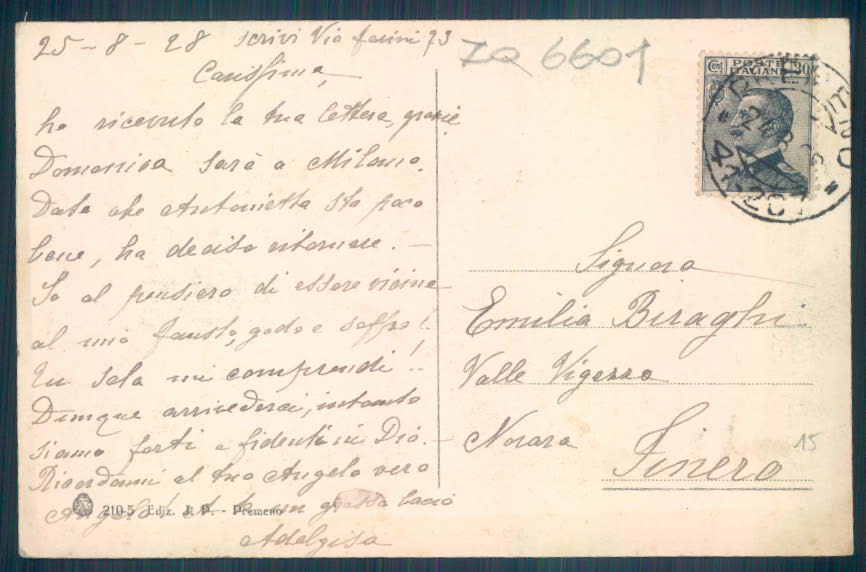 25-8-28 scrivi Via Farini 73
Carissima,
ho ricevuto la tua lettera, grazie
Domenica sarò a Milano.
Dato che Antonietta sta poco
bene, ha deciso ritornare. —
Io al pensiero di essere vicina
al mio fausto, godo e soffro!
Tu sola mi comprendi!..
Dunque arrivederci, intanto
siamo forti e fidenti in Dio. —
Ricordami al tuo Angelo vero
Angelo! un grosso bacio
Adalgisa
210-5 Ediz. J. P. - Premeno
ZQ 6601
Cent. POSTE ITALIANE 30
41-207
Signora
Emilia Biraghi
Valle Vigezzo
Novara
Finero
15